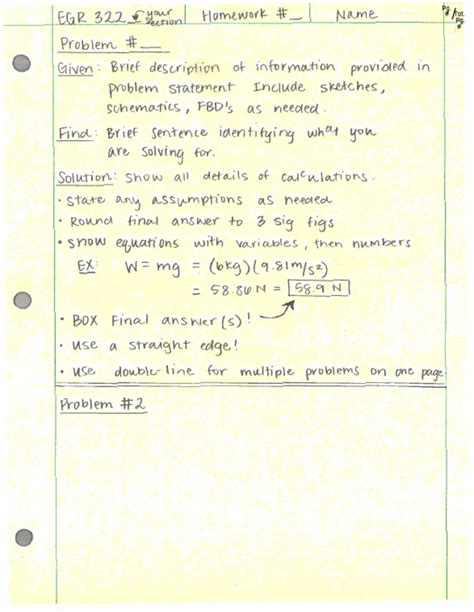 EGR 322 your section Homework #_ Name pg #/tot pg #
Problem #__
Given: Brief description of information provided in
problem statement Include sketches,
schematics, FBD's as needed.
Find: Brief sentence identifying what you
are solving for.
Solution: Show all details of calculations.
• State any assumptions as needed
• Round final answer to 3 sig figs
• Show equations with variables, then numbers
EX: W = mg = (6kg)(9.81m/s²)
= 58.86 N = 58.9 N
• BOX Final answer(s)!
• Use a straight edge!
• Use double-line for multiple problems on one page
Problem #2